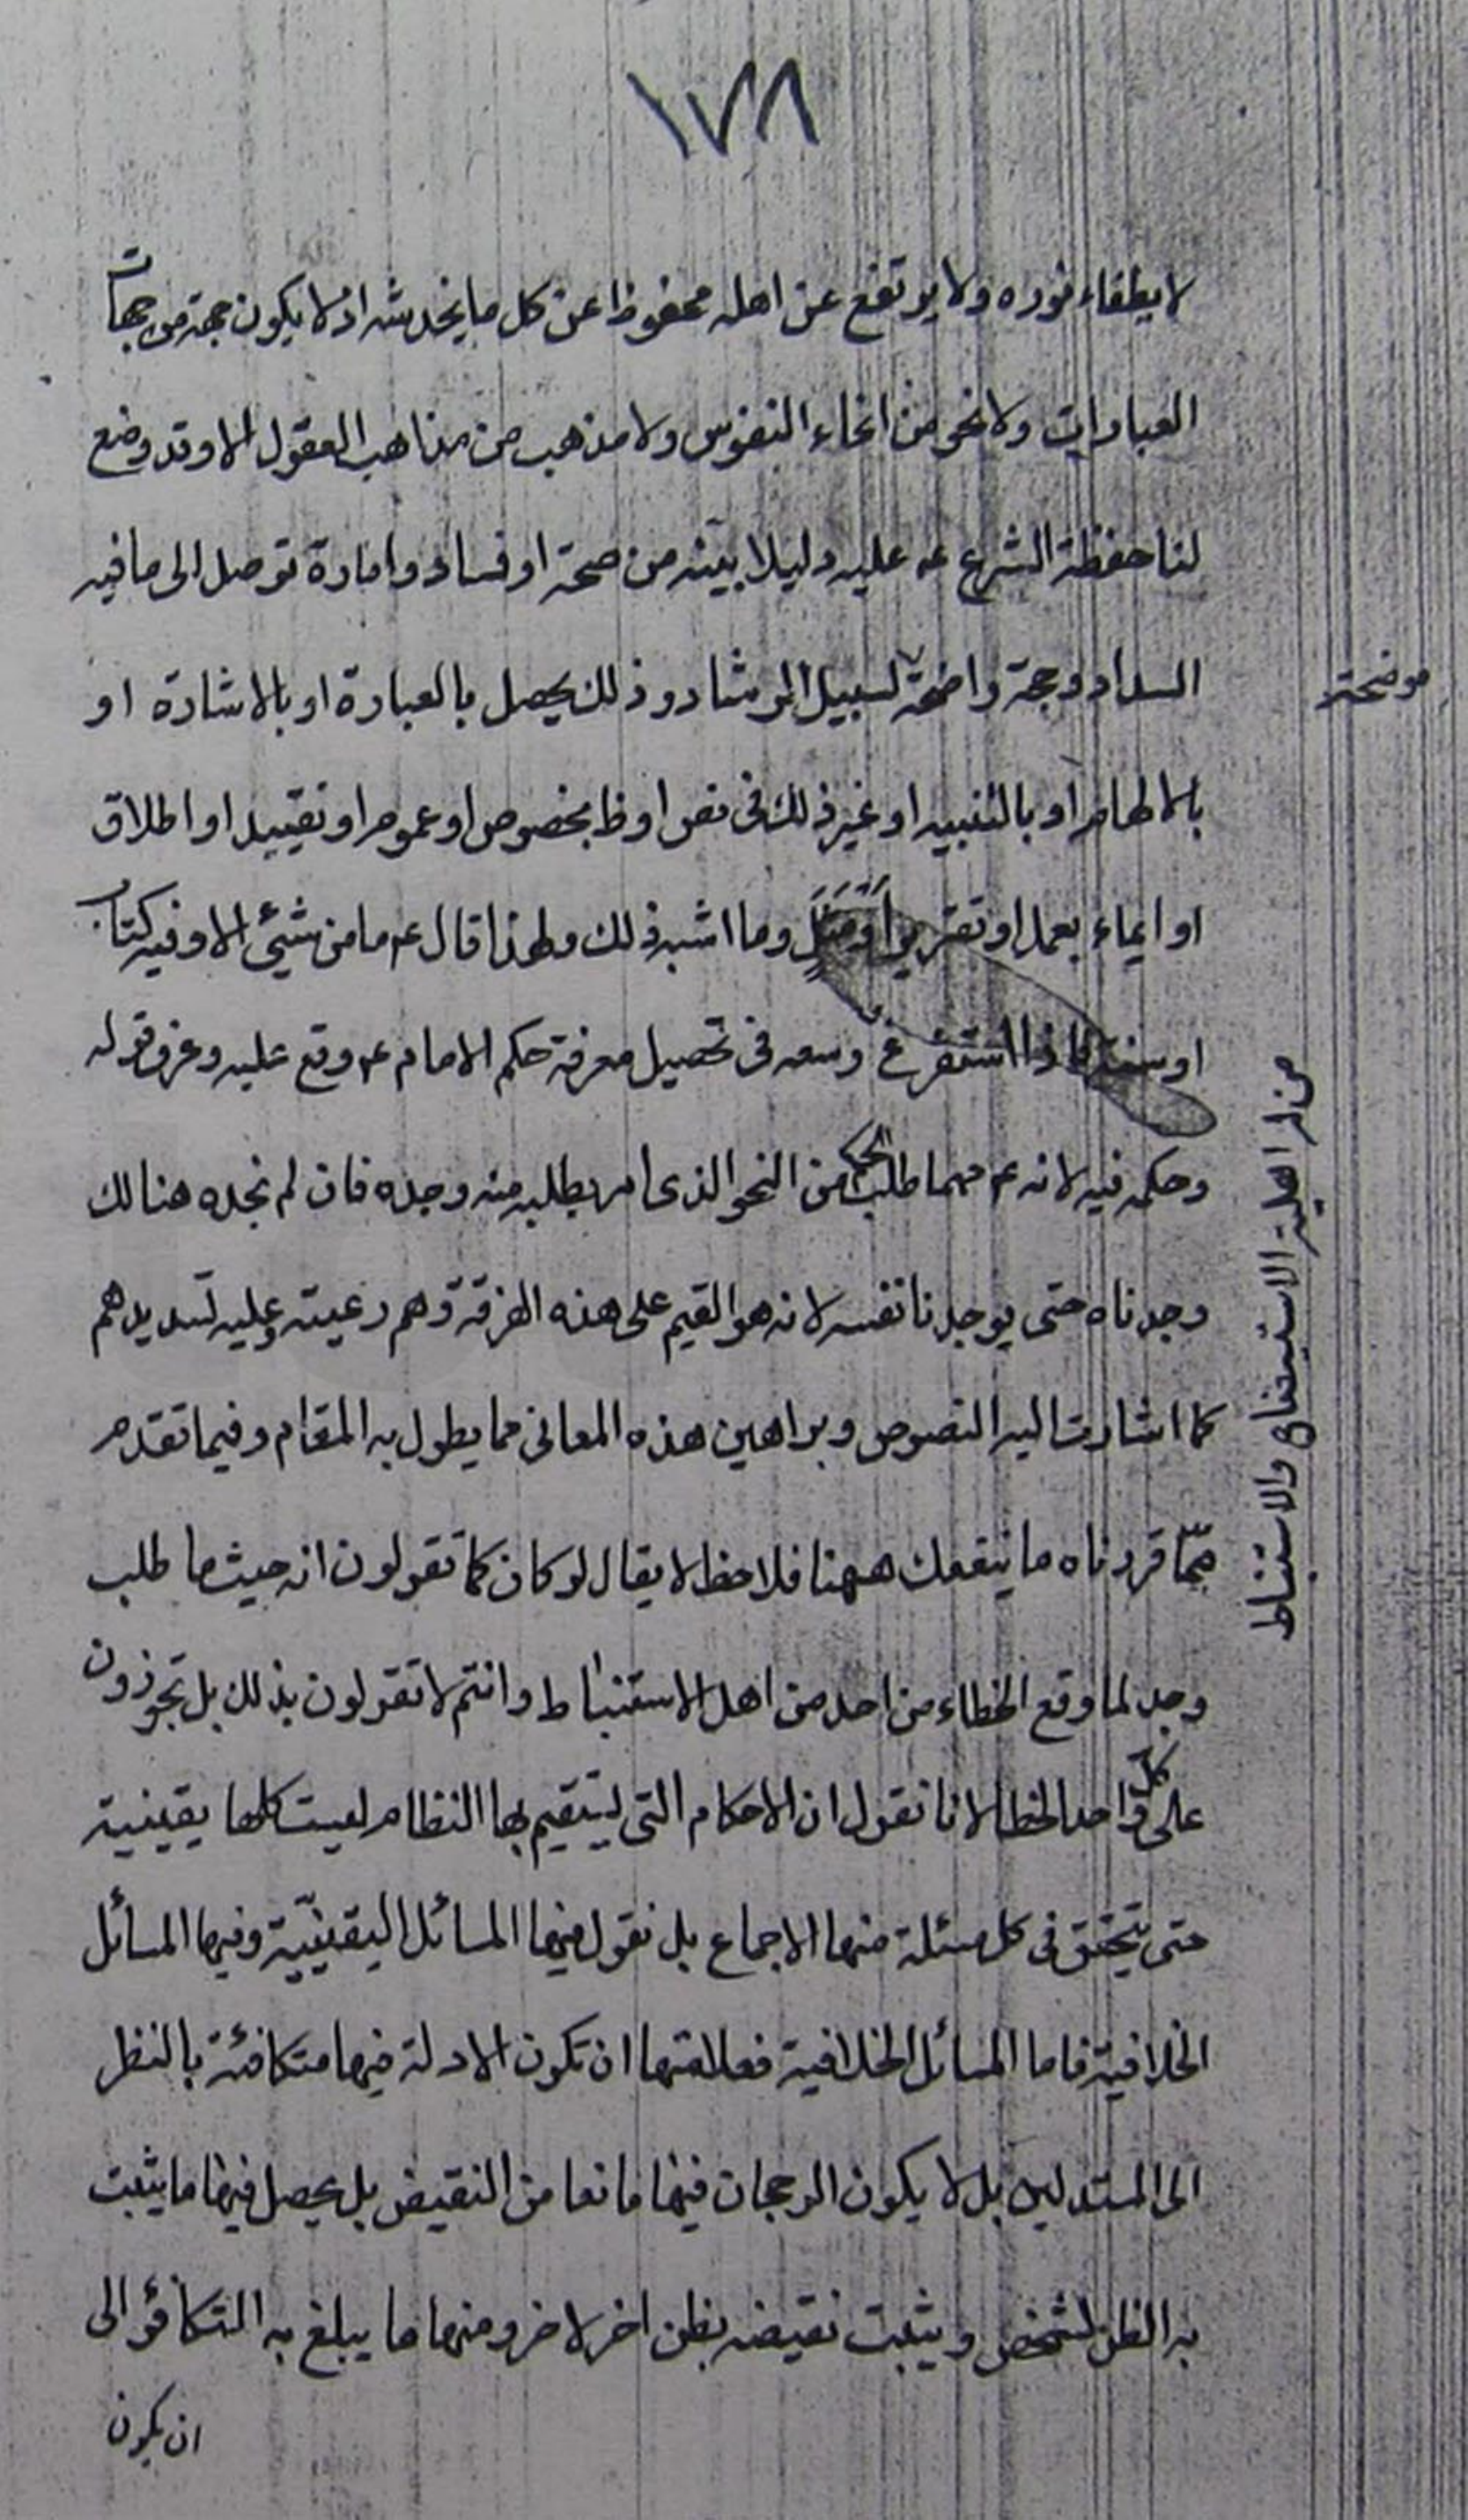 ١٧٨
لا يطفاء نوره ولا يرتفع عن اهله محفوظا عن كل ما يخدشه اذ لا يكون جهة من جهات
العبارات ولا نحو من انحاء النفوس ولا مذهب من مذاهب العقول الا وقد وضع
لنا حفظة الشرع ع عليه دليلا بينه من صحة او فساد وامارة توصل الى ما فيه
السداد وحجة واضحة لسبيل الرشاد وذلك يحصل بالعبارة او بالاشارة او
موضحة
بالالهام او بالتنبيه او غير ذلك في نص او ظ بخصوص او عموم او تقييد او اطلاق
او ايماء بعمل او تقرير او مثل وما اشبه ذلك ولهذا قال ع ما من شيئ الا وفيه كتاب
او سنة فاذا استفرغ وسعه في تحصيل معرفة حكم الامام ع وقع عليه وعرف قوله
من له اهلية الاستيضاح والاستنباط
وحكمه فيه لانه ع مهما طلب الحكم من النحو الذى امر بطلبه منه وجده فان لم نجده هنالك
وجدناه حتى يوجدنا نفسه لانه هو القيم على هذه الفرقة وهم رعيته وعليه تسديدهم
كما اشارت اليه النصوص وبراهين هذه المعانى مما يطول به المقام وفيما تقدم
ممّا قررناه ما ينفعك ههنا فلاحظ لا يقال لو كان كما تقولون انه حيث ما طلب
وجد لما وقع الخطاء من احد من اهل الاستنباط وانتم لا تقولون بذلك بل تجوزون
على كلّ واحد الخطا لانا نقول ان الاحكام التى يستقيم بها النظام ليست كلها يقينية
حتى يتحقق في كل مسئلة منها الاجماع بل نقول فيها المسائل اليقينيّة وفيها المسائل
الخلافية فاما المسائل الخلافية فعلامتها ان تكون الادلة فيها متكافئة بالنظر
الى المستدلين بل لا يكون الرجحان فيها مانعا من النقيض بل يحصل فيها ما يثبت
به الظن لشخص ويثبت نقيضه بظن اخر لاخر ومنها ما يبلغ به التكافؤ الى
ان يكون